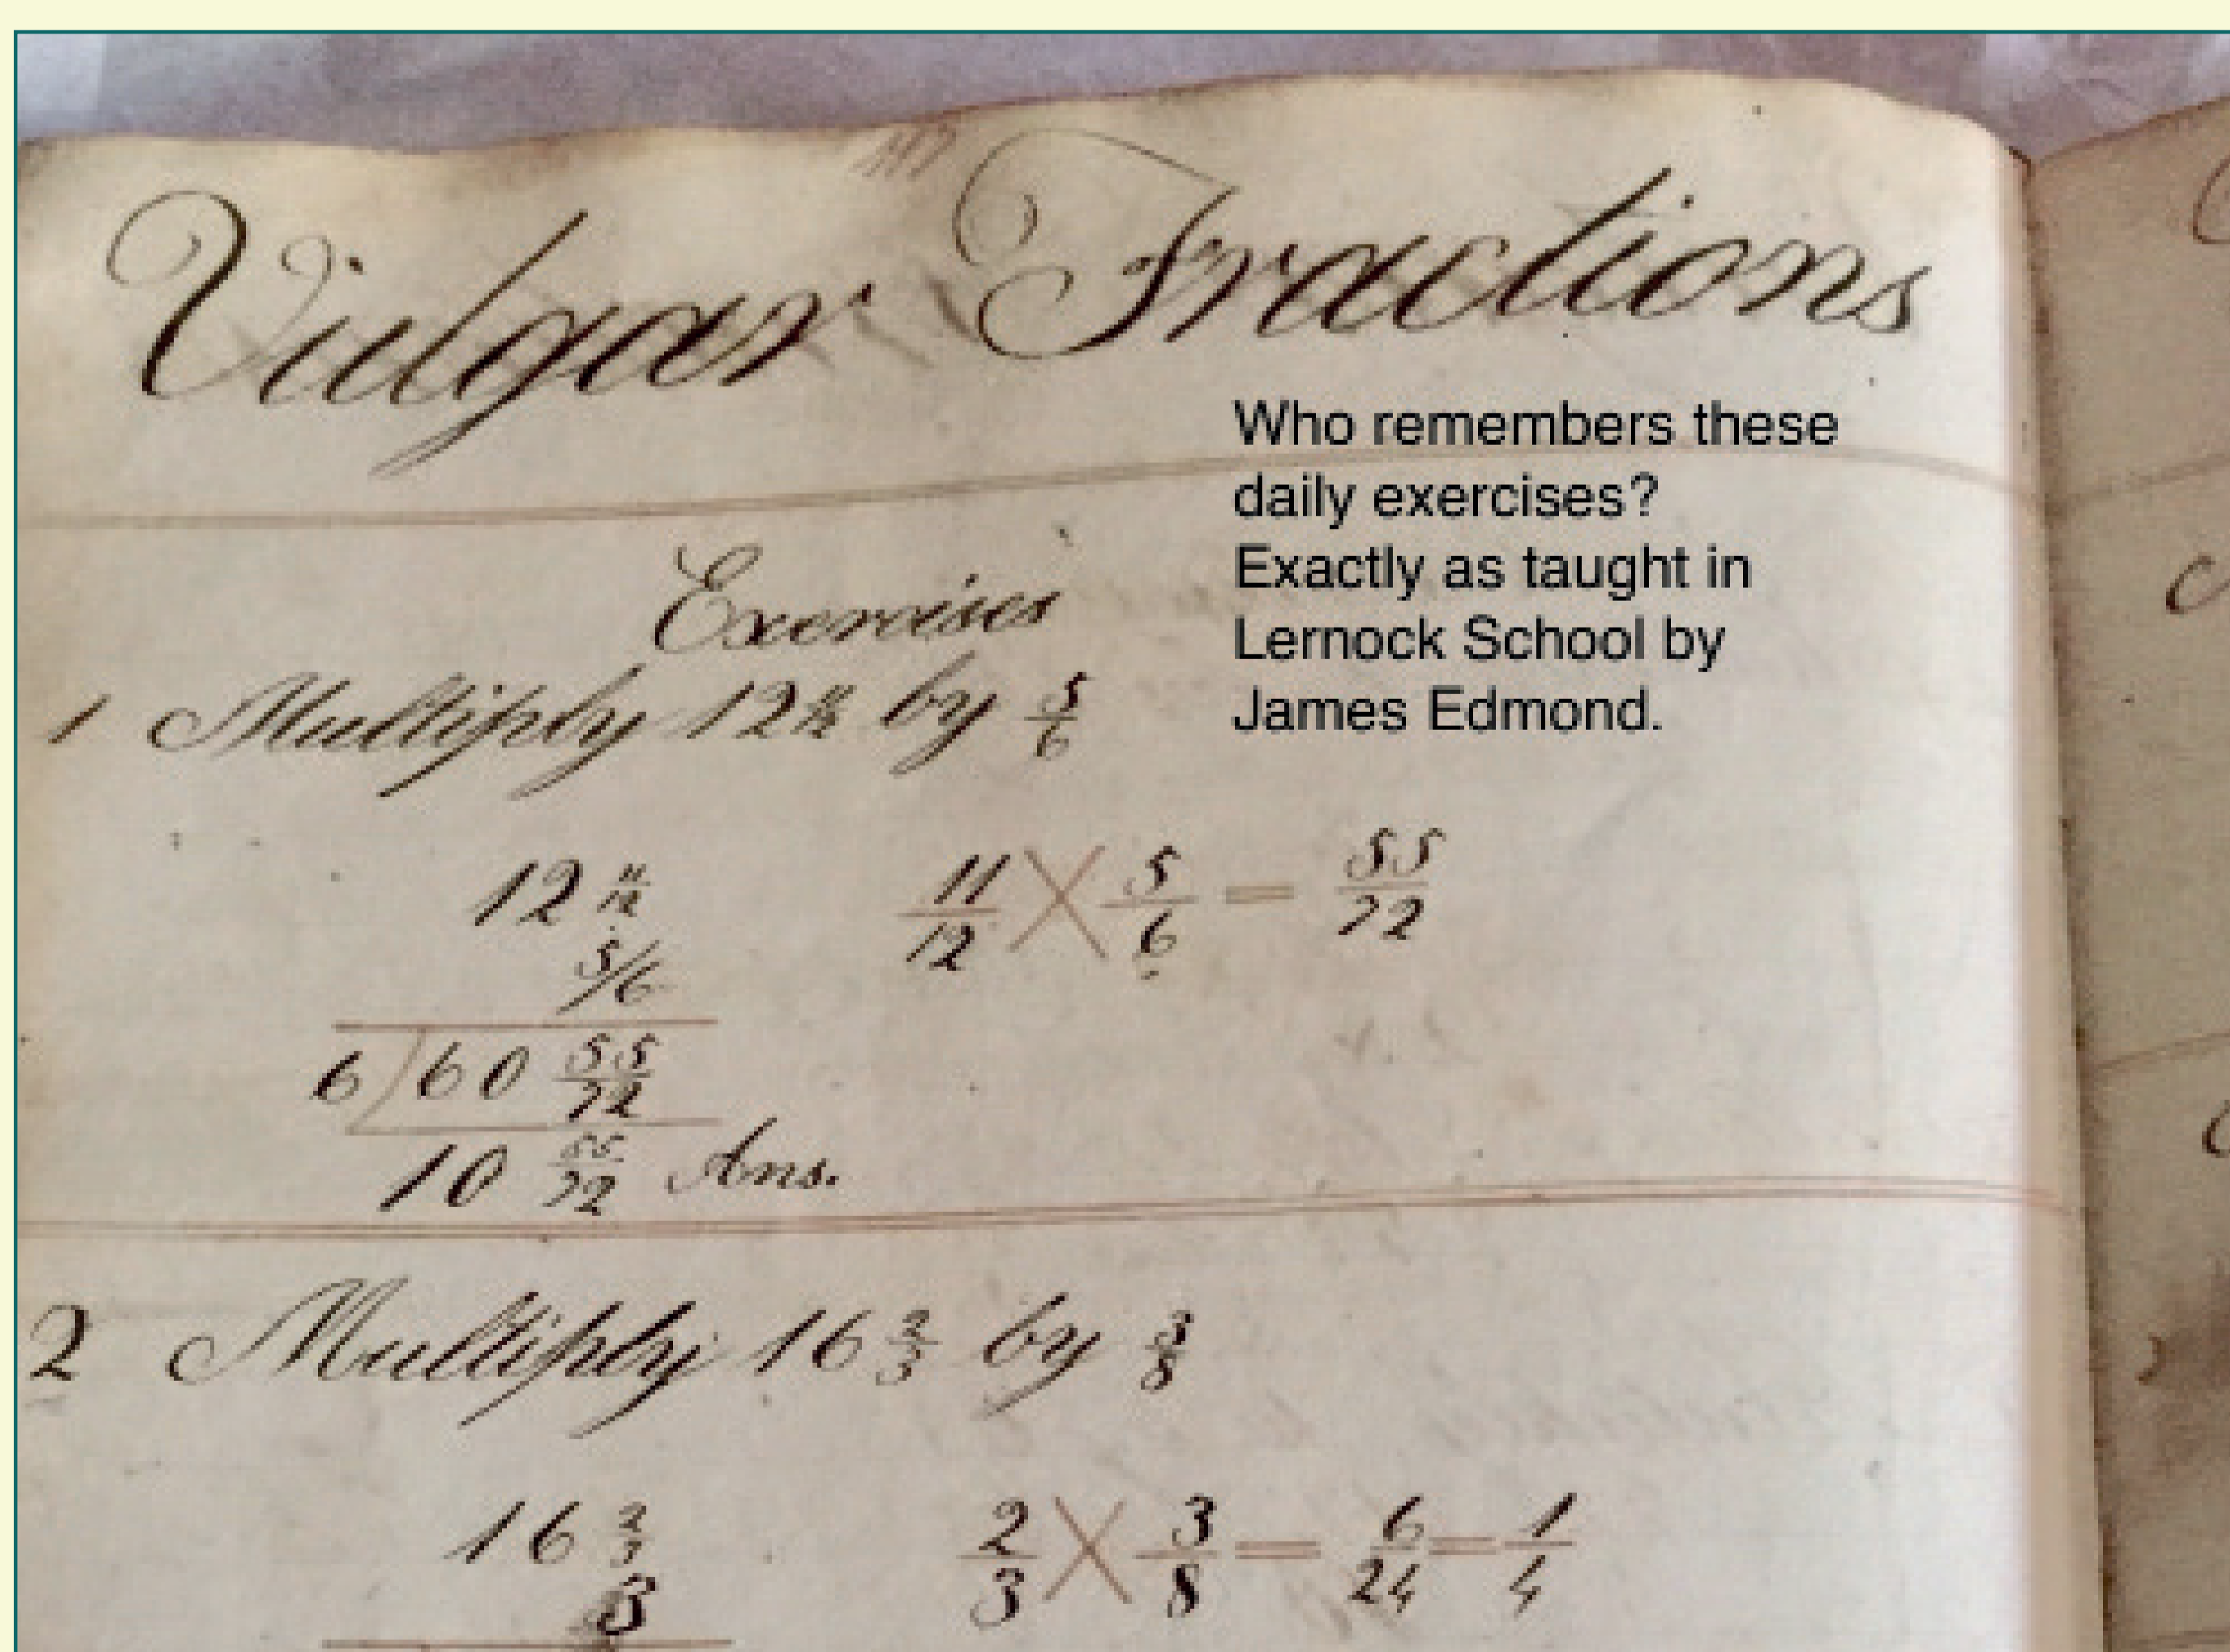 Vulgar Fractions
Who remembers these
daily exercises?
Exactly as taught in
Lernock School by
James Edmond.
Exercises
1 Multiply 12 11/12 by 5/6
12 11/12 11/12 × 5/6 = 55/72
5/6
6 ) 60 55/72
10 55/72 Ans.
2 Multiply 16 2/3 by 3/8
16 2/3 2/3 × 3/8 = 6/24 = 1/4
3